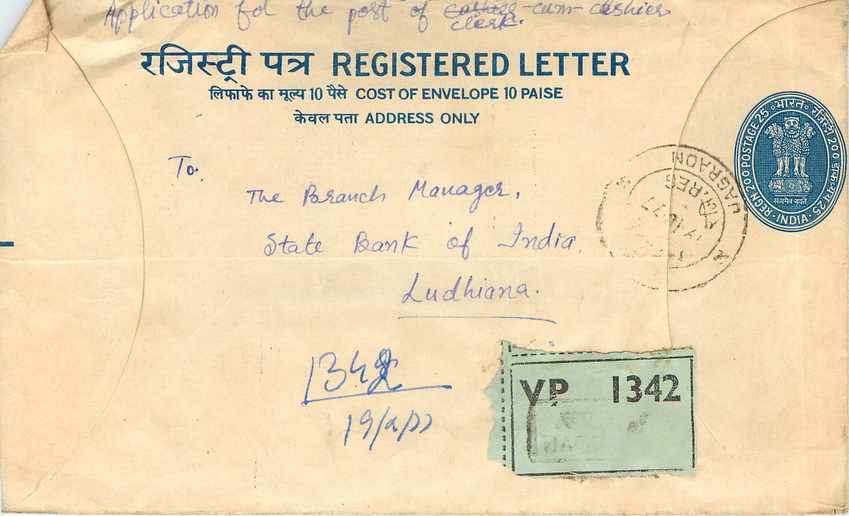 Application for the post of cashier-cum-cashier
clerk.
रजिस्ट्री पत्र REGISTERED LETTER
लिफाफे का मूल्य 10 पैसे COST OF ENVELOPE 10 PAISE
केवल पता ADDRESS ONLY
REGN 200 POSTAGE 25 भारत रजिस्ट्री 200 डाक 25
सत्यमेव जयते
INDIA
JAGRAON
REG
77
To.
The Branch Manager,
State Bank of India,
Ludhiana.
1342
VP 1342